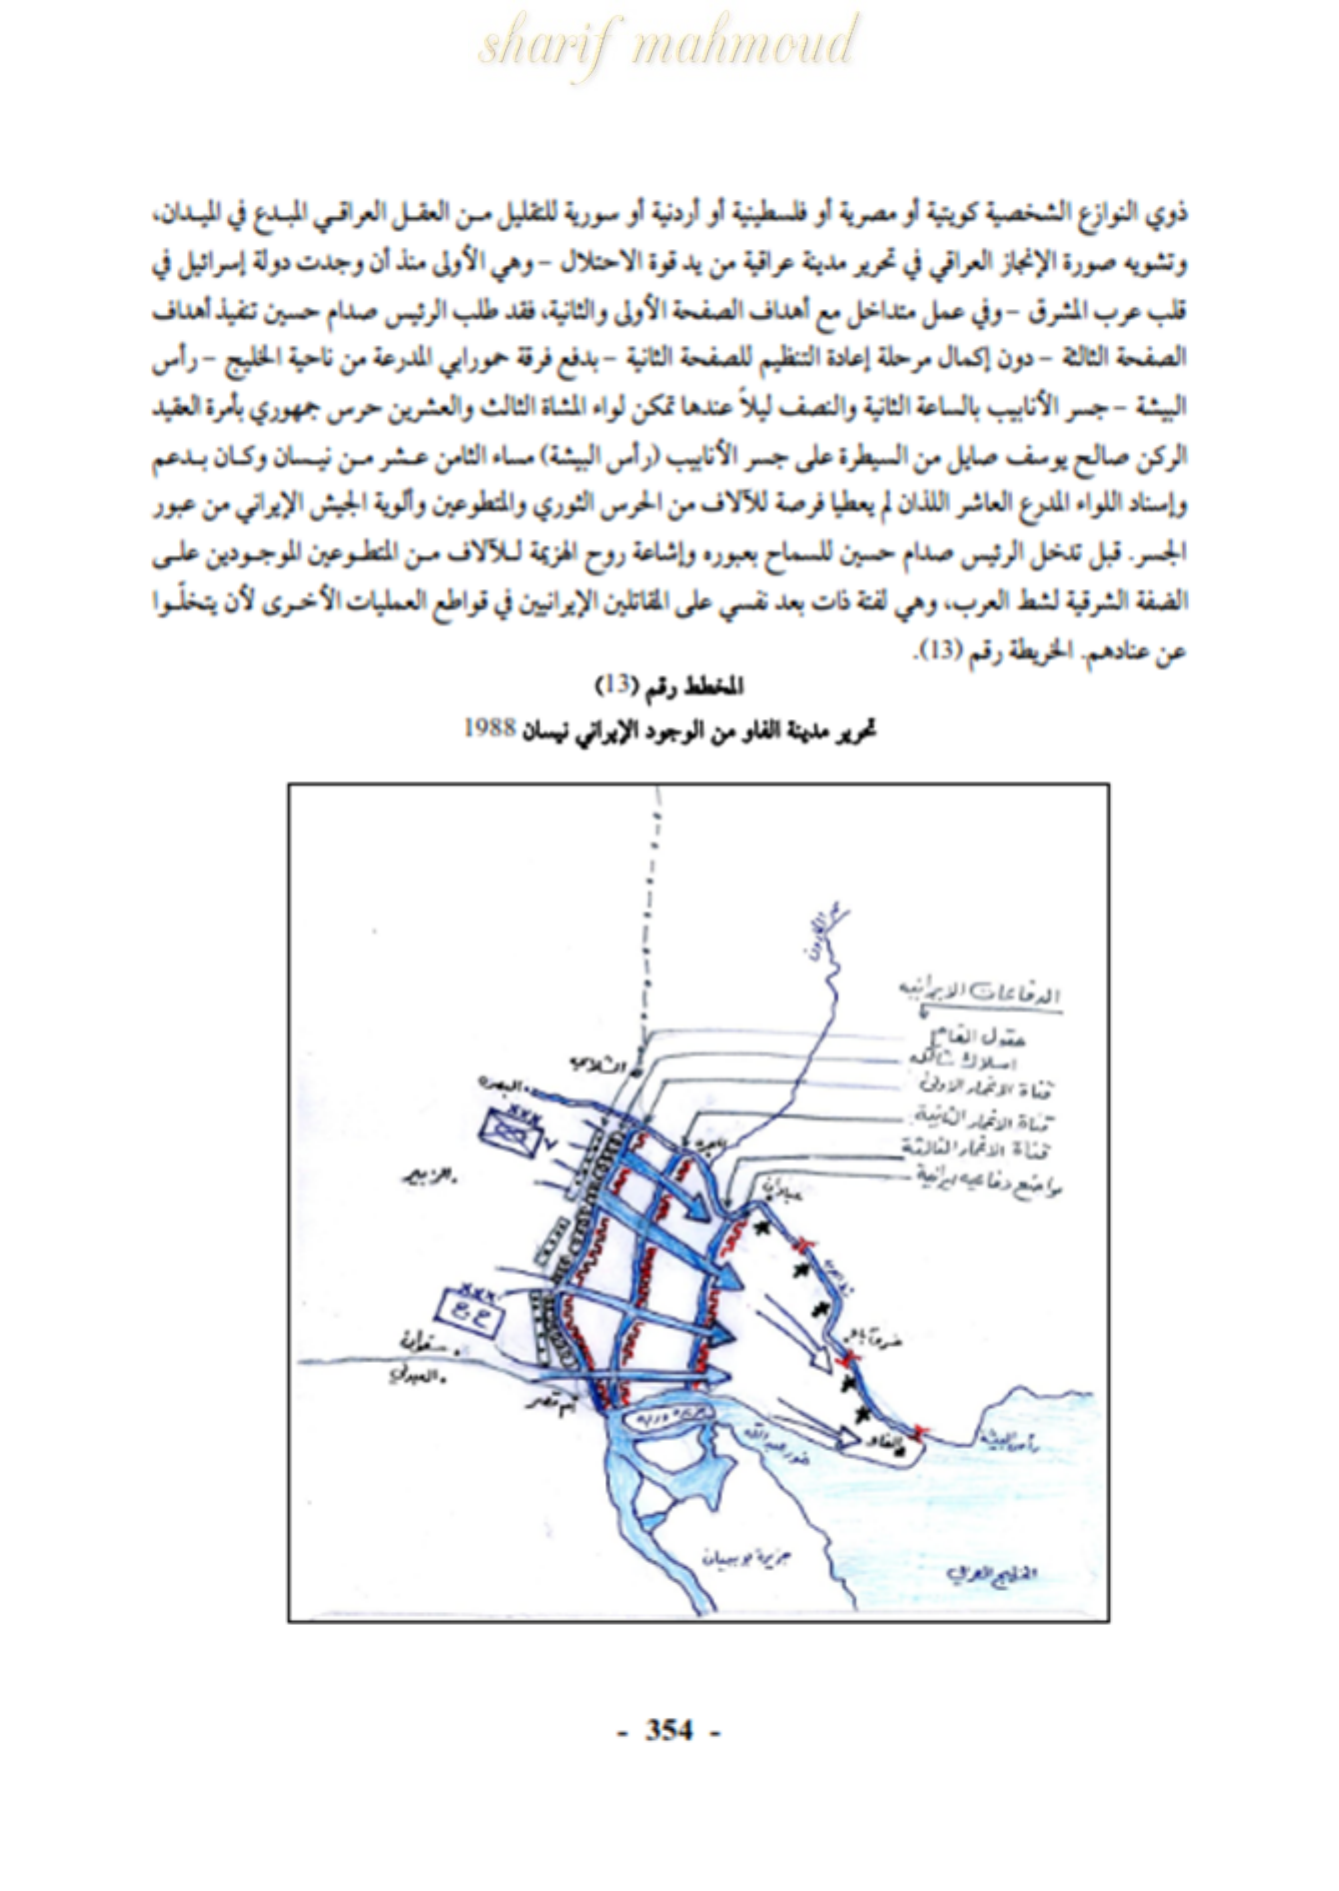 sharif mahmoud
ذوي النوازع الشخصية كويتية أو مصرية أو فلسطينية أو أردنية أو سورية للتقليل مـن العقـل العراقـي المبـدع في الميـدان،
وتشويه صورة الإنجاز العراقي في تحرير مدينة عراقية من يد قوة الاحتلال – وهي الأولى منذ أن وجدت دولة إسرائيل في
قلب عرب المشرق – وفي عمل متداخل مع أهداف الصفحة الأولى والثانية، فقد طلب الرئيس صدام حسين تنفيذ أهداف
الصفحة الثالثة – دون إكمال مرحلة إعادة التنظيم للصفحة الثانية – بدفع فرقة حمورابي المدرعة من ناحية الخليج – رأس
البيشة – جسر الأنابيب بالساعة الثانية والنصف ليلاً عندها تمكن لواء المشاة الثالث والعشرين حرس جمهوري بأمرة العقيد
الركن صالح يوسف صايل من السيطرة على جسر الأنابيب (رأس البيشة) مساء الثامن عـشر مـن نيـسان وكـان بـدعم
وإسناد اللواء المدرع العاشر اللذان لم يعطيا فرصة للآلاف من الحرس الثوري والمتطوعين وألوية الجيش الإيراني من عبور
الجسر. قبل تدخل الرئيس صدام حسين للسماح بعبوره وإشاعة روح الهزيمة لـلآلاف مـن المتطـوعين الموجـودين علـى
الضفة الشرقية لشط العرب، وهي لفتة ذات بعد نفسي على المقاتلين الإيرانيين في قواطع العمليات الأخـرى لأن يتخلّـوا
عن عنادهم. الخريطة رقم (13).
المخطط رقم (13)
تحرير مدينة الفاو من الوجود الإيراني نيسان 1988
نهر الكارون
الدفاعات الايرانيه
حقول الغام
اسلاك شائكه
قناة الانحار الاولى
قناة الانحار الثانية
قناة الانحار الثالثة
مواضع دفاعيه ايرانية
الشلامجه
البصره
xxx
الزبير
عبادان
xxx
سفوان
العبدلي
ام قصر
الفاو
رأس البيشة
خور عبدالله
جزيرة بوبيان
الخليج العربي
- 354 -